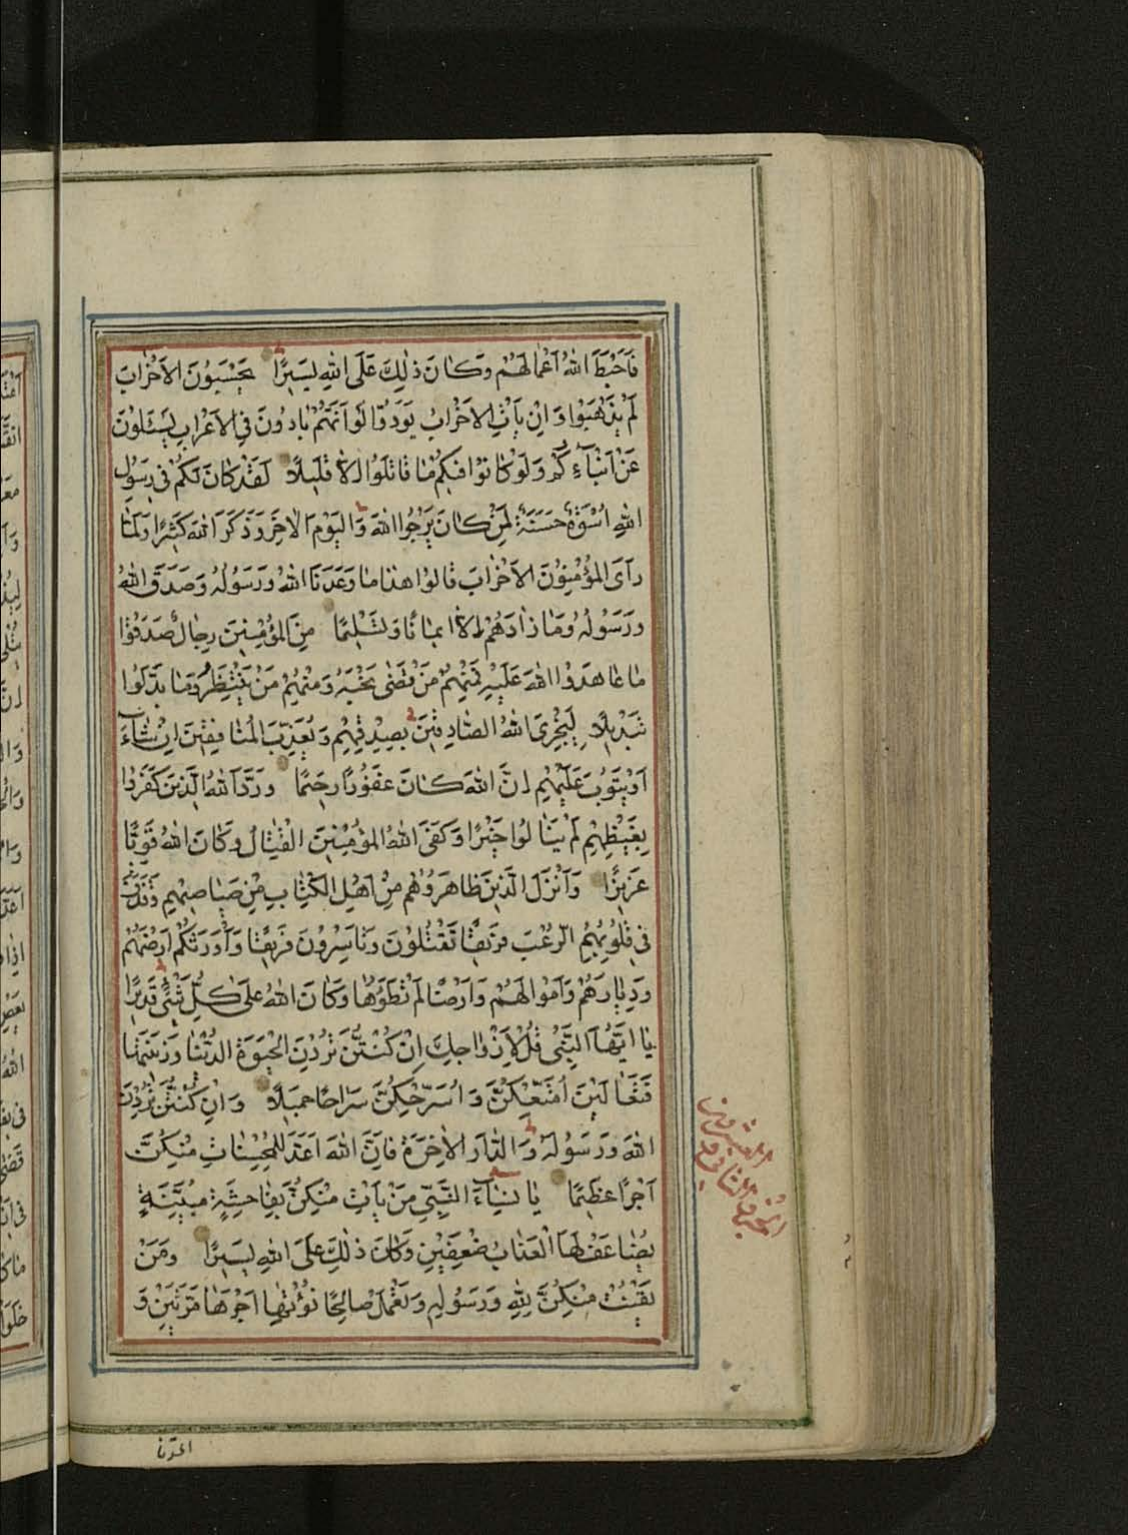 فَاَحْبَطَ اللهُ اَعْمَالَهُمْ وَكَانَ ذٰلِكَ عَلَى اللهِ يَسِيرًا يَحْسَبُونَ الْاَحْزَابَ
لَمْ يَذْهَبُوا وَاِنْ يَاْتِ الْاَحْزَابُ يَوَدُّوا لَوْ اَنَّهُمْ بَادُونَ فِي الْاَعْرَابِ يَسْئَلُونَ
عَنْ اَنْبَاءِكُمْ وَلَوْ كَانُوا فِيكُمْ مَا قَاتَلُوا اِلَّا قَلِيلًا لَقَدْ كَانَ لَكُمْ فِي رَسُولِ
اللهِ اُسْوَةٌ حَسَنَةٌ لِمَنْ كَانَ يَرْجُوا اللهَ وَالْيَوْمَ الْاٰخِرَ وَذَكَرَ اللهَ كَثِيرًا وَلَمَّا
رَاَى الْمُؤْمِنُونَ الْاَحْزَابَ قَالُوا هٰذَا مَا وَعَدَنَا اللهُ وَرَسُولُهُ وَصَدَقَ اللهُ
وَرَسُولُهُ وَمَا زَادَهُمْ اِلَّا اِيمَانًا وَتَسْلِيمًا مِنَ الْمُؤْمِنِينَ رِجَالٌ صَدَقُوا
مَا عَاهَدُوا اللهَ عَلَيْهِ فَمِنْهُمْ مَنْ قَضٰى نَحْبَهُ وَمِنْهُمْ مَنْ يَنْتَظِرُ وَمَا بَدَّلُوا
تَبْدِيلًا لِيَجْزِيَ اللهُ الصَّادِقِينَ بِصِدْقِهِمْ وَيُعَذِّبَ الْمُنَافِقِينَ اِنْ شَاءَ
اَوْ يَتُوبَ عَلَيْهِمْ اِنَّ اللهَ كَانَ غَفُورًا رَحِيمًا وَرَدَّ اللهُ الَّذِينَ كَفَرُوا
بِغَيْظِهِمْ لَمْ يَنَالُوا خَيْرًا وَكَفَى اللهُ الْمُؤْمِنِينَ الْقِتَالَ وَكَانَ اللهُ قَوِيًّا
عَزِيزًا وَاَنْزَلَ الَّذِينَ ظَاهَرُوهُمْ مِنْ اَهْلِ الْكِتَابِ مِنْ صَيَاصِيهِمْ وَقَذَفَ
فِي قُلُوبِهِمُ الرُّعْبَ فَرِيقًا تَقْتُلُونَ وَتَاْسِرُونَ فَرِيقًا وَاَوْرَثَكُمْ اَرْضَهُمْ
وَدِيَارَهُمْ وَاَمْوَالَهُمْ وَاَرْضًا لَمْ تَطَؤُهَا وَكَانَ اللهُ عَلٰى كُلِّ شَيْءٍ قَدِيرًا
يَا اَيُّهَا النَّبِيُّ قُلْ لِاَزْوَاجِكَ اِنْ كُنْتُنَّ تُرِدْنَ الْحَيٰوةَ الدُّنْيَا وَزِينَتَهَا
فَتَعَالَيْنَ اُمَتِّعْكُنَّ وَاُسَرِّحْكُنَّ سَرَاحًا جَمِيلًا وَاِنْ كُنْتُنَّ تُرِدْنَ
اللهَ وَرَسُولَهُ وَالدَّارَ الْاٰخِرَةَ فَاِنَّ اللهَ اَعَدَّ لِلْمُحْسِنَاتِ مِنْكُنَّ
اَجْرًا عَظِيمًا يَا نِسَاءَ النَّبِيِّ مَنْ يَاْتِ مِنْكُنَّ بِفَاحِشَةٍ مُبَيِّنَةٍ
يُضَاعَفْ لَهَا الْعَذَابُ ضِعْفَيْنِ وَكَانَ ذٰلِكَ عَلَى اللهِ يَسِيرًا وَمَنْ
يَقْنُتْ مِنْكُنَّ لِلّٰهِ وَرَسُولِهِ وَتَعْمَلْ صَالِحًا نُؤْتِهَا اَجْرَهَا مَرَّتَيْنِ وَ
الجزء الثاني و
العشرون
اعتدنا